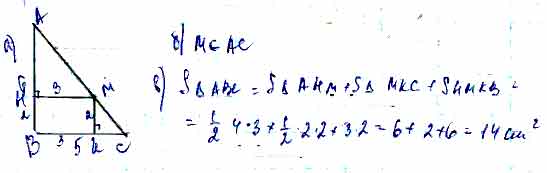 а)
A
3
M
2
2
B
3
5
K
C
б) M ∈ AC
в) SΔABC = SΔAHM + SΔMKC + SHMKB =
= 1/2 4·3 + 1/2 · 2·2 + 3·2 = 6 + 2 + 6 = 14 cm²